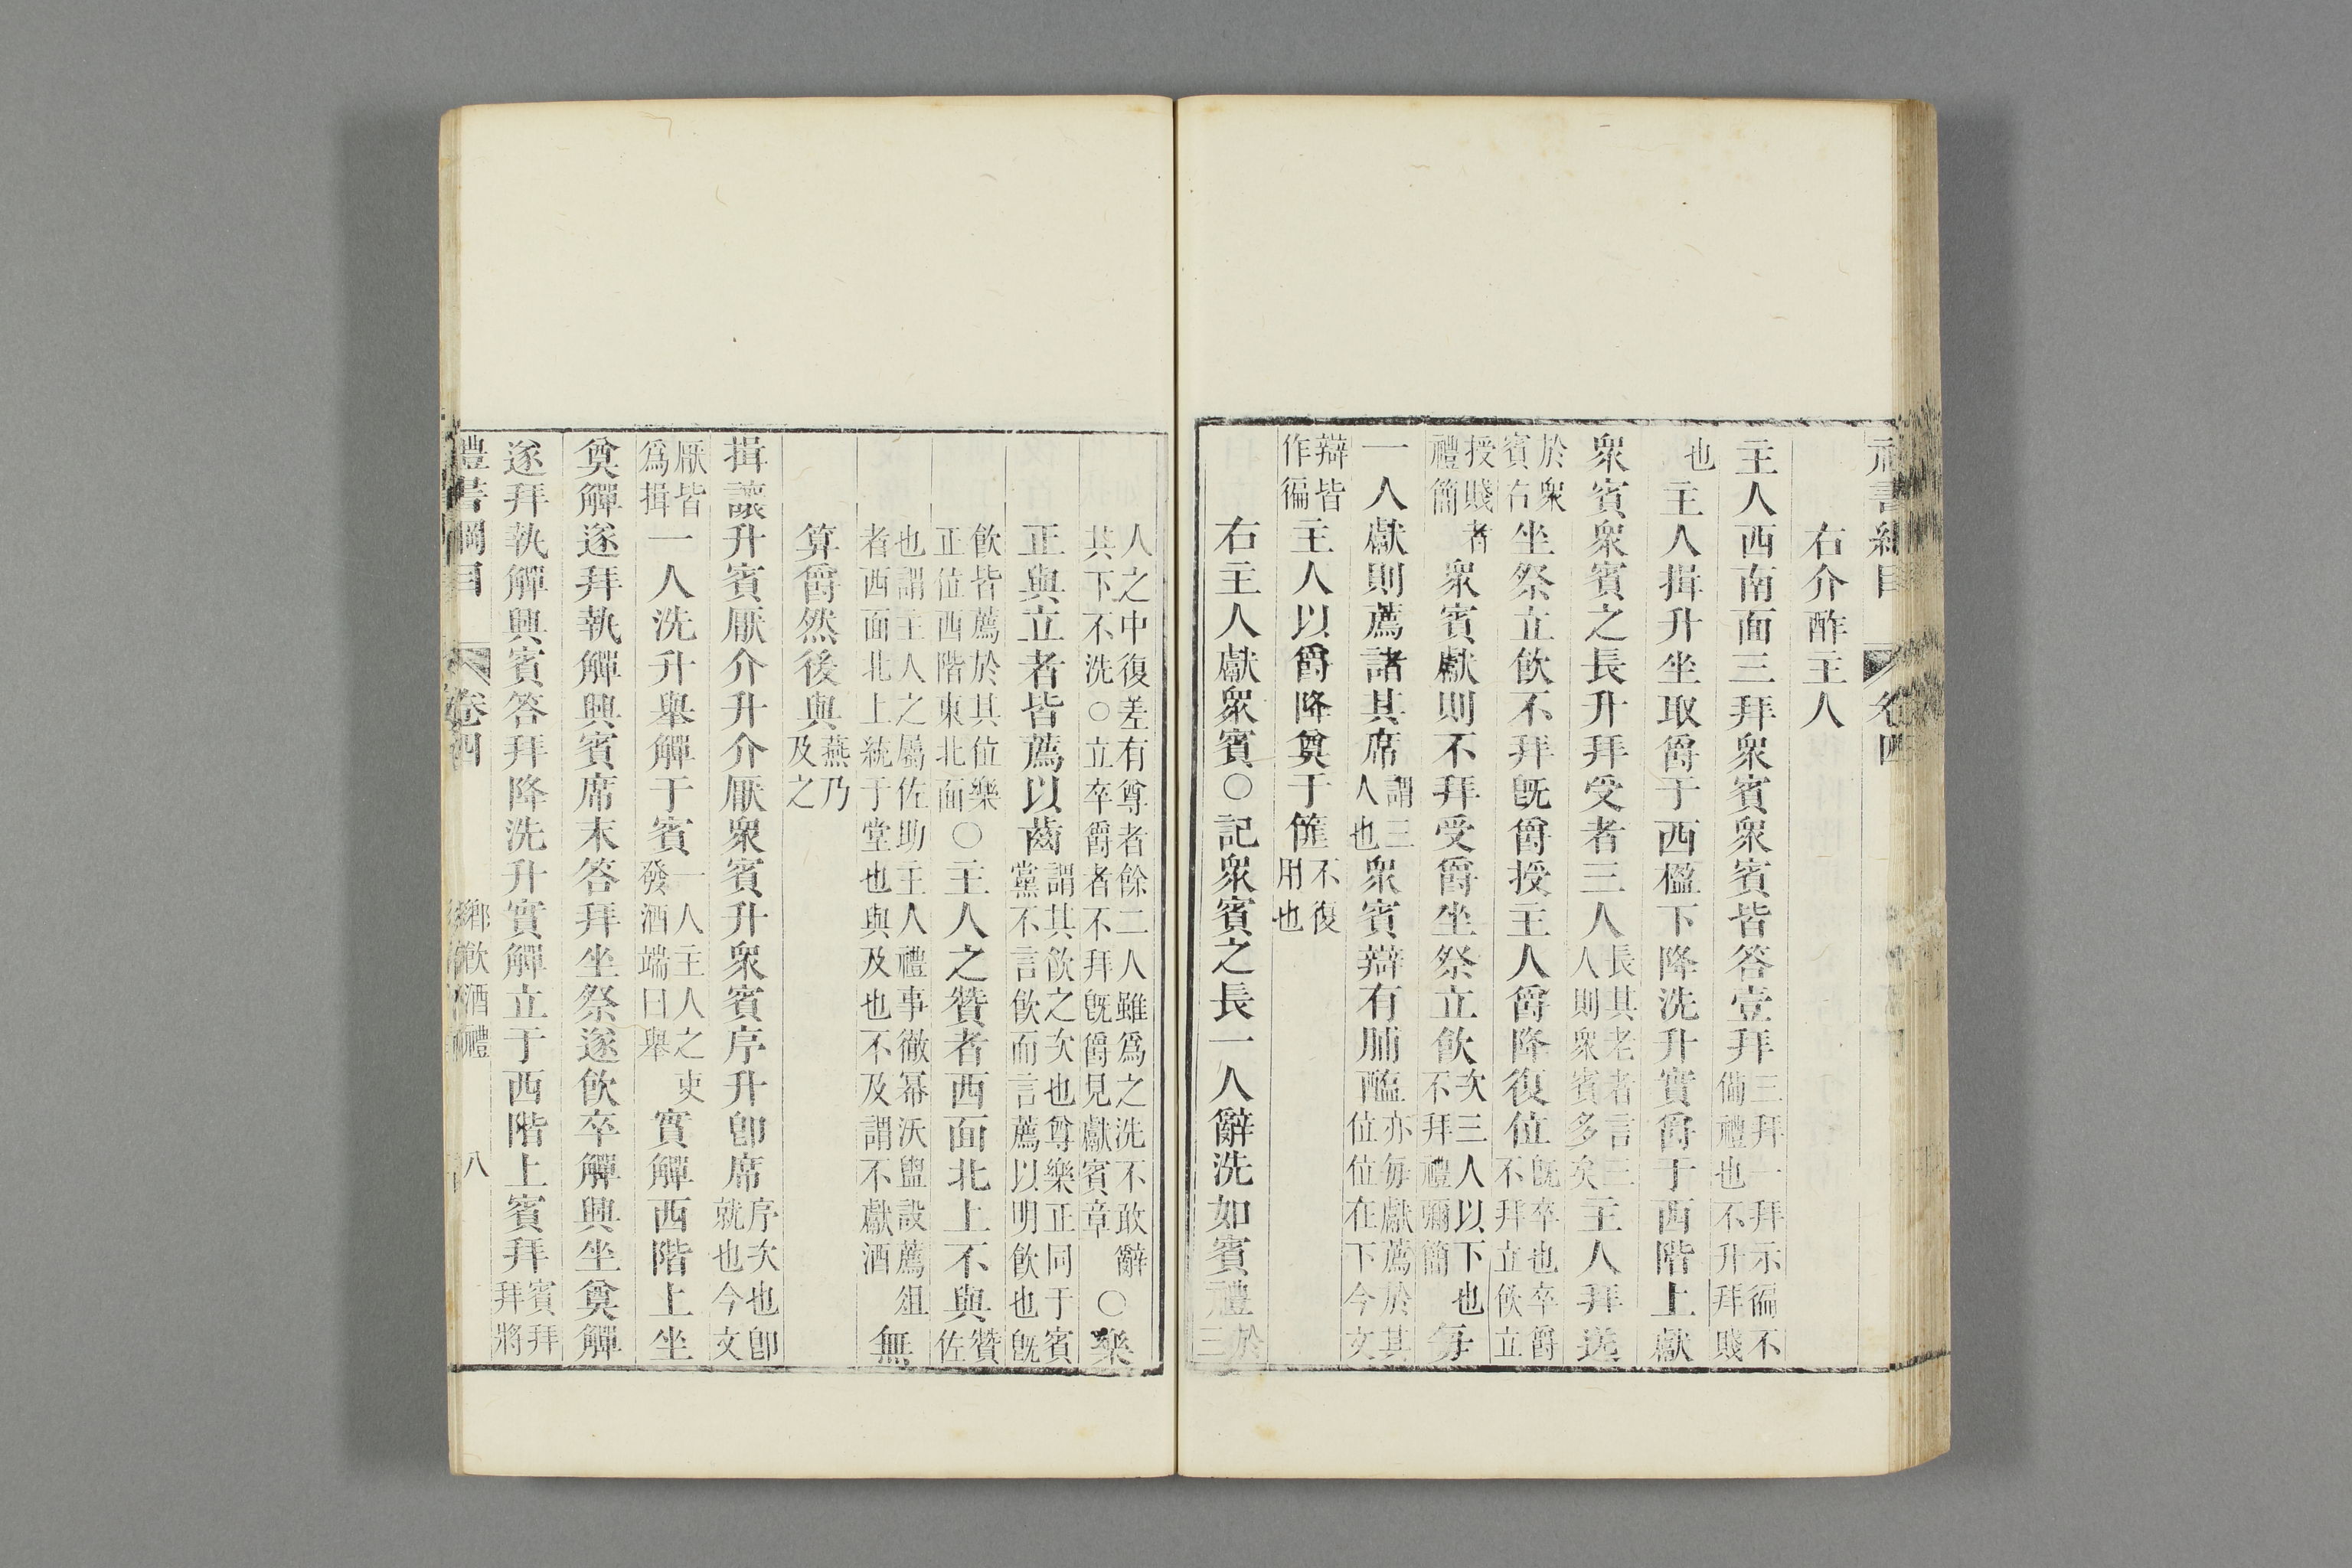 禮書綱目 卷四
右介酢主人
主人西南面三拜衆賓衆賓皆答壹拜三拜一拜示徧不備禮也不升拜賤
也主人揖升坐取爵于西楹下降洗升實爵于西階上獻
衆賓衆賓之長升拜受者三人長其老者言三人則衆賓多矣主人拜送
於衆賓右坐祭立飲不拜旣爵授主人爵降復位旣卒也卒爵不拜立飲立
授賤者禮簡衆賓獻則不拜受爵坐祭立飲次三人以下也不拜禮彌簡每
一人獻則薦諸其席謂三人也衆賓辯有脯醢亦每獻薦於其位位在下今文
辯皆作徧主人以爵降奠于篚不復用也
右主人獻衆賓○記衆賓之長一人辭洗如賓禮於三
人之中復差有尊者餘二人雖爲之洗不敢辭其下不洗○立卒爵者不拜旣爵見獻賓章○樂
正與立者皆薦以齒謂其飲之次也尊樂正同于賓黨不言飲而言薦以明飲也旣
飲皆薦於其位樂正位西階東北面○主人之贊者西面北上不與贊佐
也謂主人之屬佐助主人禮事徹冪沃盥設薦俎者西面北上統于堂也與及也不及謂不獻酒無
算爵然後與燕乃及之
揖讓升賓厭介升介厭衆賓升衆賓序升卽席序次也卽就也今文
厭皆爲揖一人洗升舉觶于賓一人主人之吏發酒端曰舉實觶西階上坐
奠觶遂拜執觶興賓席末答拜坐祭遂飲卒觶興坐奠觶
遂拜執觶興賓答拜降洗升實觶立于西階上賓拜賓拜拜將
禮書綱目 卷四 鄉飲酒禮 八